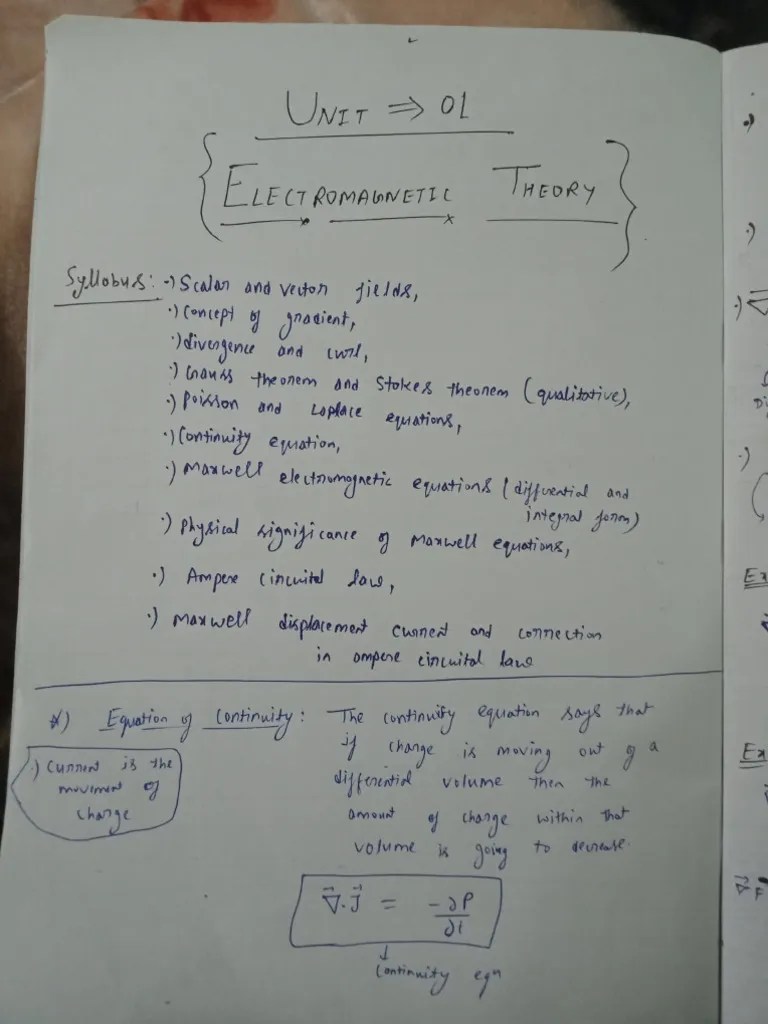 UNIT ⇒ 01
{ ELECTROMAGNETIC THEORY }
Syllabus: •) Scalar and vector fields,
•) Concept of gradient,
•) divergence and curl,
•) Gauss theorem and Stokes theorem (qualitative),
•) Poisson and Laplace equations,
•) Continuity equation,
•) Maxwell electromagnetic equations (differential and
integral form)
•) Physical significance of Maxwell equations,
•) Ampere circuital law,
•) Maxwell displacement current and correction
in ampere circuital law
*) Equation of Continuity: The continuity equation says that
if charge is moving out of a
differential volume then the
amount of charge within that
volume is going to decrease.
•) Current is the
movement of
charge
∇⃗.J⃗ = -∂ρ/∂t
↓
Continuity eqn
Ex
Ex
∇⃗F